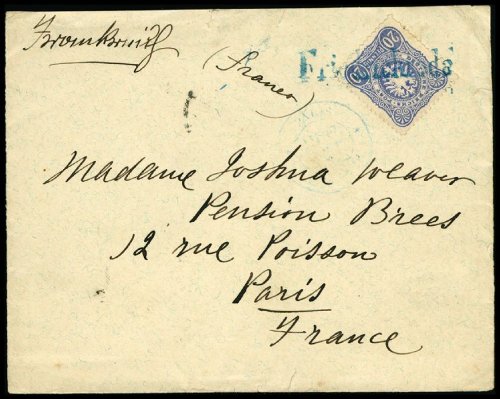 Frankreich
(France)
20
Madame Joshua Weaver
Pension Brees
12 rue Poisson
Paris
France